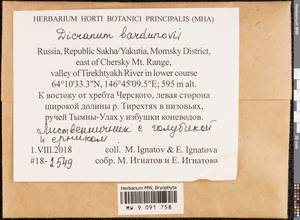 HERBARIUM HORTI BOTANICI PRINCIPALIS (MHA)
Dicranum bardunovii
Russia, Republic Sakha/Yakutia, Momsky District,
east of Chersky Mt. Range,
valley of Tirekhtyakh River in lower course
64°10'33.3"N, 146°45'09.5"E; 595 m alt.
К востоку от хребта Черского, левая сторона
широкой долины р. Тирехтях в низовьях,
ручей Тымны-Улах у избушки коневодов.
Лиственничник с голубикой
и ерником
1.VIII.2018 coll. M. Ignatov & E. Ignatova
#18-2549 собр. М. Игнатов и Е. Игнатова
Herbarium MW, Bryophyta
MW 9 091 758